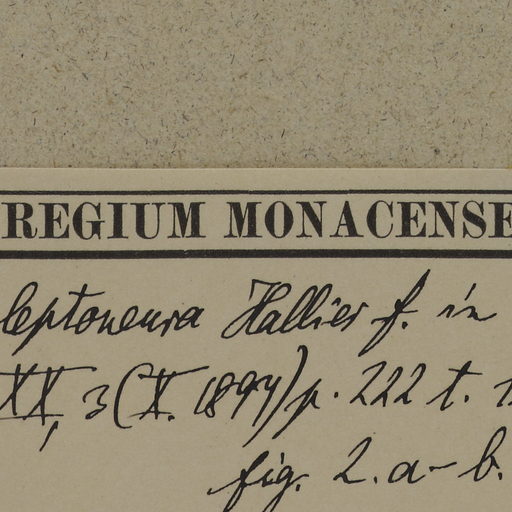 REGIUM MONACENSE
leptoneura Hallier f. in
XX, 3 (X. 1897) p. 222 t.
fig. 2. a - b.